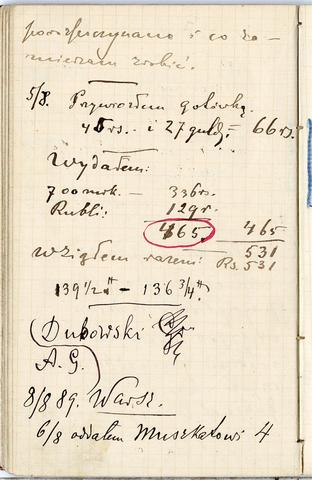 i co za-
mierzam zrobić.
5/8. Przywiozłem gotówką.
45rs. i 27 guld = 66rs.
Wydałem:
700mrk. — 336rs.
Rubli: 129r.
465. 465
531
Wziąłem razem: Rs. 531
139 1/2 — 136 3/4
Dubowski
A. G.
8/8 89. Warsz.
6/8 oddałem Muszkatowi 4